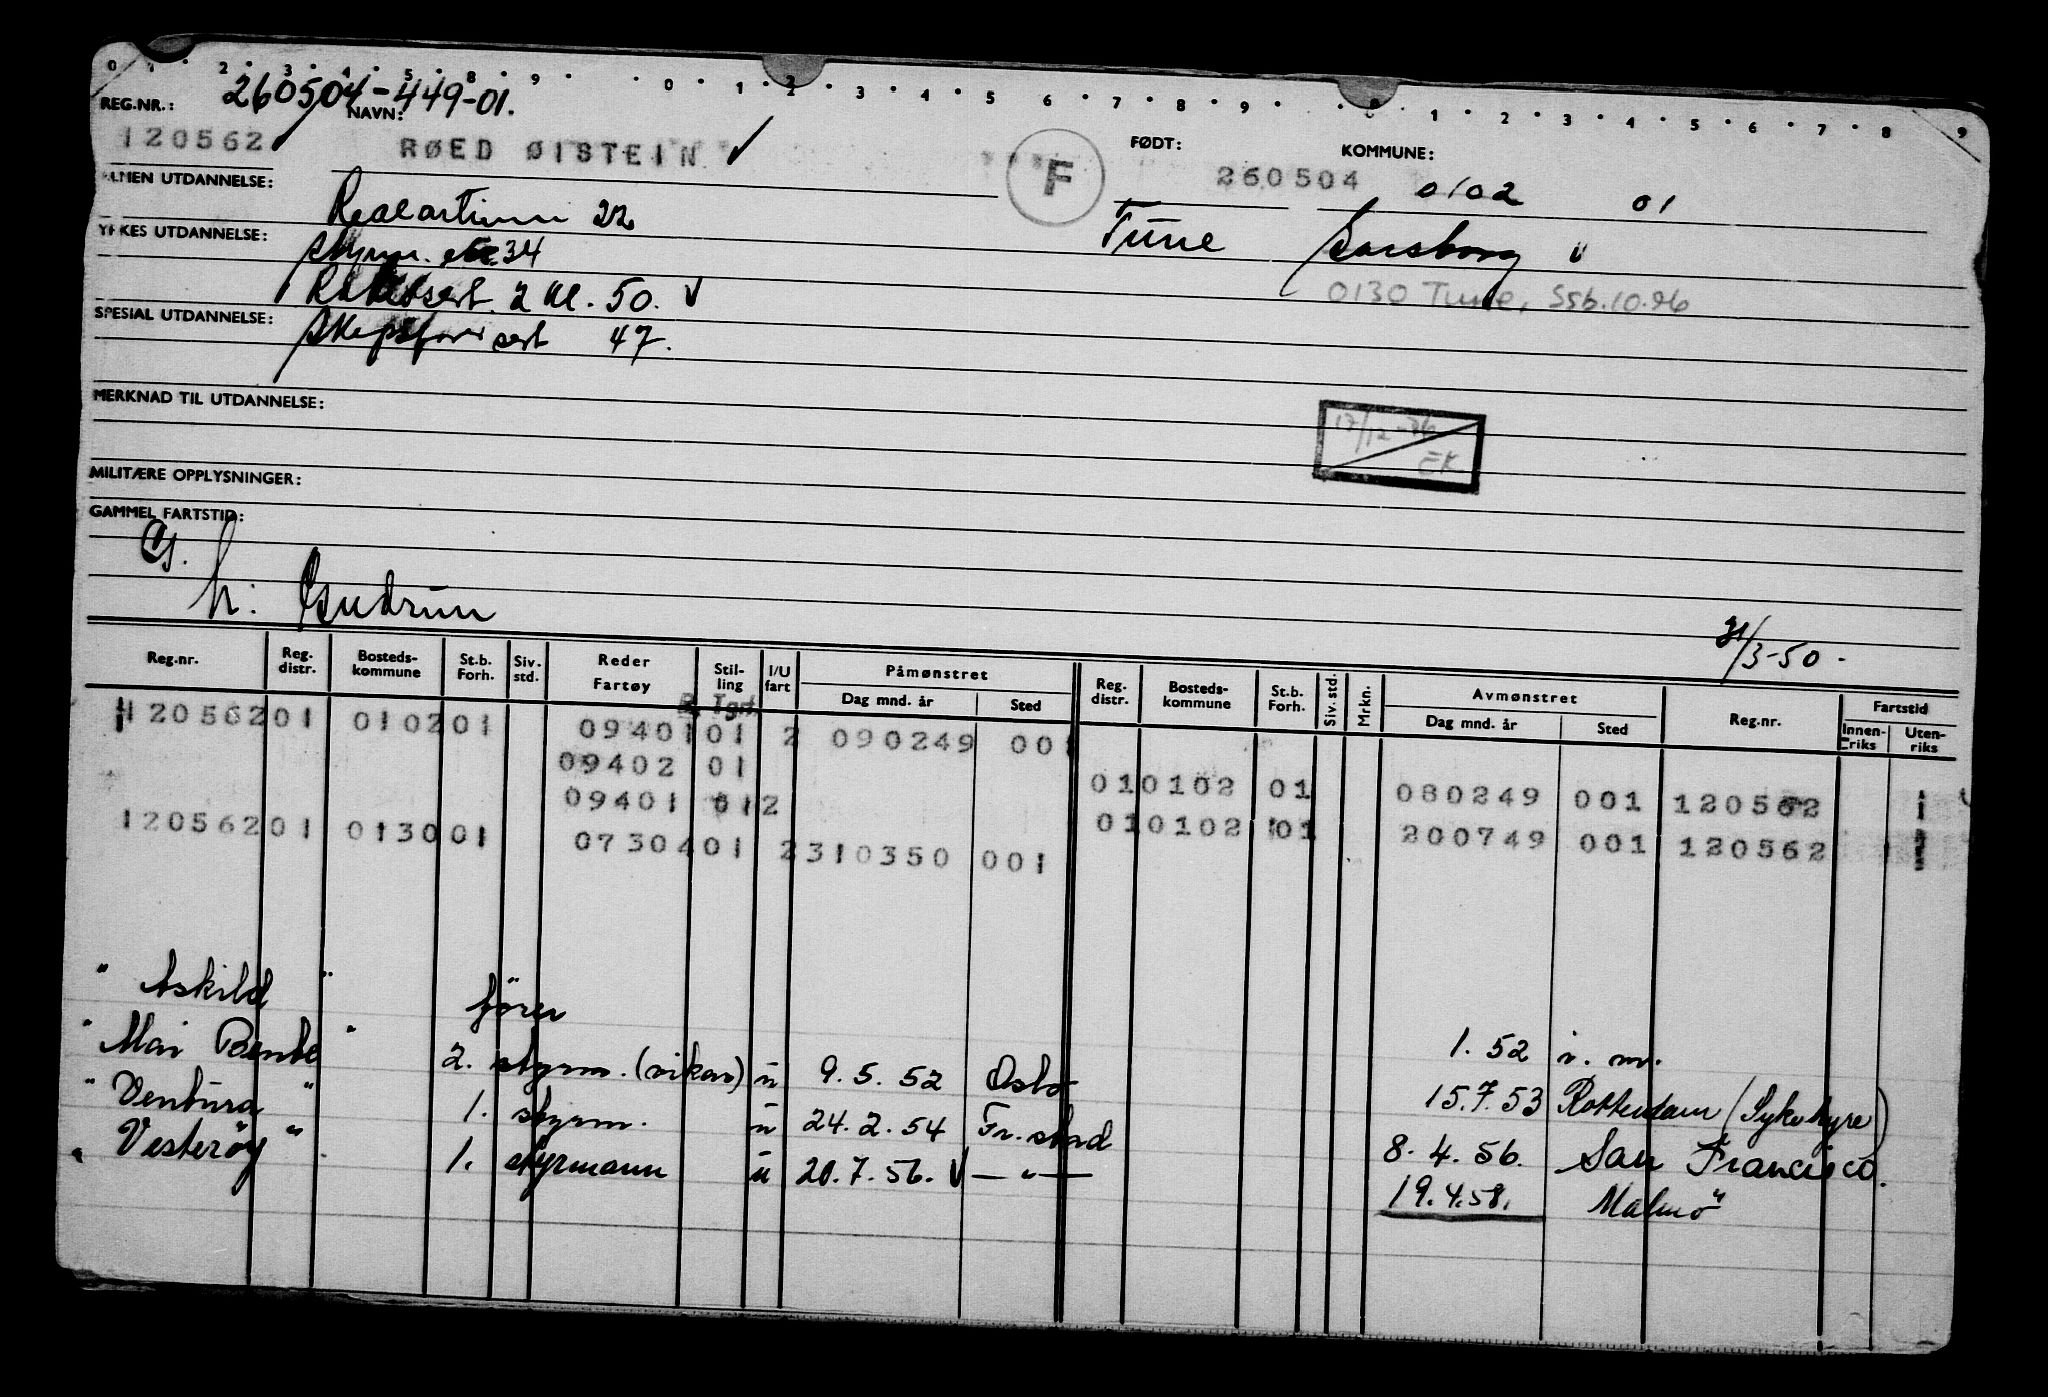 0 1 2 3 4 5 8 9 0 1 2 3 4 5 6 7 8 9 0 1 2 3 4 5 6 7 8 9
REG.NR.: 260504-449-01. NAVN: FØDT: KOMMUNE:
120562 RØED ØISTEIN ✓ F 260504 0102 01
ALMEN UTDANNELSE: Realartium 22 Tune Sarsborg
YRKES UTDANNELSE: styrm. 34
0130 Tune, Ssb.10.96
sert. 2 kl. 50. ✓
SPESIAL UTDANNELSE: sert 47.
MERKNAD TIL UTDANNELSE:
17/12-76
EK
MILITÆRE OPPLYSNINGER:
GAMMEL FARTSTID:
G.
h: Gudrun
31/3-50.
Reg.nr. Reg. distr. Bosteds-kommune St.b. Forh. Siv. std. Reder Fartøy Stil-ling I/U fart Påmønstret Dag mnd. år Sted Reg. distr. Bosteds-kommune St.b. Forh. Siv. std. Mrkn. Avmønstret Dag mnd. år Sted Reg.nr. Fartstid Innen-riks Uten-riks
B. Tgst.
120562 01 0102 01 09401 01 2 090249 001
09402 01 01 0102 01 080249 001 120562 1
09401 01 2 01 0102 01 200749 001 120562 1
120562 01 0130 01 07304 01 2 310350 001
" Askild " förer 1. 52
" Mai Bente " 2. styrm. (vikar) u 9.5.52 Oslo 15.7.53 Rotterdam (Sykehyre)
" Ventura " 1. styrm. u 24.2.54 Fr.stad 8.4.56. San Francisco.
" Vesteröy " 1. styrmann u 20.7.56. ✓ — " — 19.4.58. Malmö